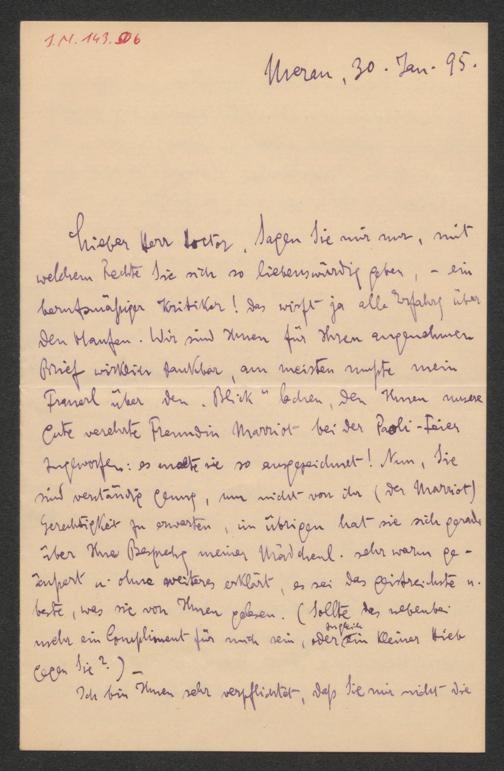 J.N. 143.506
Meran, 30. Jan. 95.
Lieber Herr Doctor, Sagen Sie mir nur, mit
welchem Rechte Sie sich so liebenswürdig geben, – ein
berufsmäßiger Kritiker! Das wirft ja alle Erfahrg über
den Haufen. Wir sind Ihnen für Ihren angenehmen
Brief wirklich dankbar, am meisten mußte mein
Frauerl über den „Blick“ lachen, den Ihnen unsere
gute verehrte Freundin Marriot bei der Paoli-Feier
zugeworfen: es malte sie so ausgezeichnet! Nun, Sie
sind verständig genug, um nicht von ihr (der Marriot)
Gerechtigkeit zu erwarten, im übrigen hat sie sich gerade
über Ihre Besprechg meiner sehr warm ge-
äußert u. ohne weiteres erklärt, es sei das geistreichste u.
beste, was sie von Ihnen gelesen. (Sollte das nebenbei
mehr ein Compliment für mich sein, oder zugleich ein kleiner Hieb
gegen Sie?) –
Ich bin Ihnen sehr verpflichtet, daß Sie mir nicht die